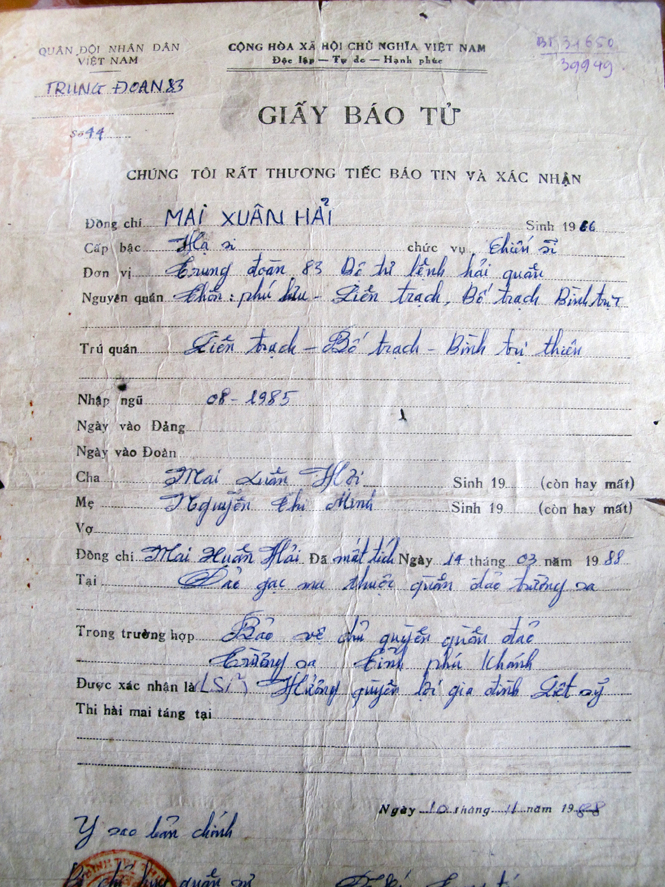 QUÂN ĐỘI NHÂN DÂN
VIỆT NAM
TRUNG ĐOÀN 83
Số 44
CỘNG HÒA XÃ HỘI CHỦ NGHĨA VIỆT NAM
Độc lập — Tự do — Hạnh phúc
BT 31650
39949
GIẤY BÁO TỬ
CHÚNG TÔI RẤT THƯƠNG TIẾC BÁO TIN VÀ XÁC NHẬN
Đồng chí MAI XUÂN HẢI Sinh 1966
Cấp bậc Hạ sĩ chức vụ chiến sĩ
Đơn vị Trung đoàn 83 Bộ tư lệnh hải quân
Nguyên quán Thôn: phú hữu - Liên trạch, Bố trạch Bình trị
Trú quán Liên trạch - Bố trạch - Bình trị thiên
Nhập ngũ 08-1985
Ngày vào Đảng
Ngày vào Đoàn
Cha Mai Xuân Hời Sinh 19 (còn hay mất)
Mẹ Nguyễn Thị Minh Sinh 19 (còn hay mất)
Vợ
Đồng chí Mai Xuân Hải Đã mất tích Ngày 14 tháng 03 năm 1988
Tại Đảo gạc ma thuộc quần đảo trường sa
Trong trường hợp Bảo vệ chủ quyền quần đảo
Trường sa tỉnh phú khánh
Được xác nhận là (LSĩ) Hưởng quyền lợi gia đình Liệt sỹ
Thi hài mai táng tại
Ngày 10 tháng 11 năm 1988
Y sao bản chính